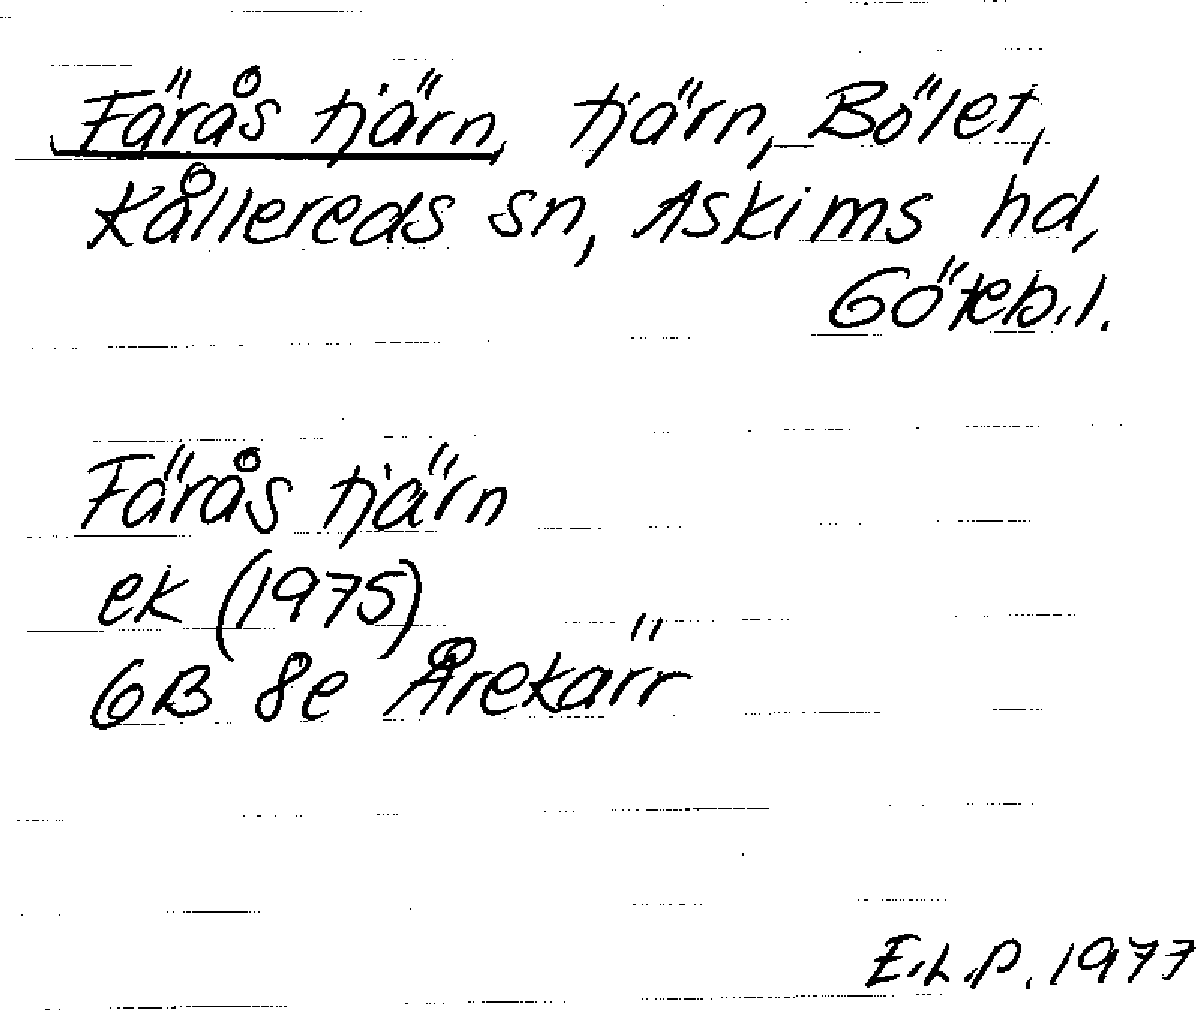 Färås tjärn, tjärn, Bölet,
Kållereds sn, Askims hd,
Göteb.l.
Färås tjärn
ek (1975)
6B 8e Årekärr
E.L.P. 1977